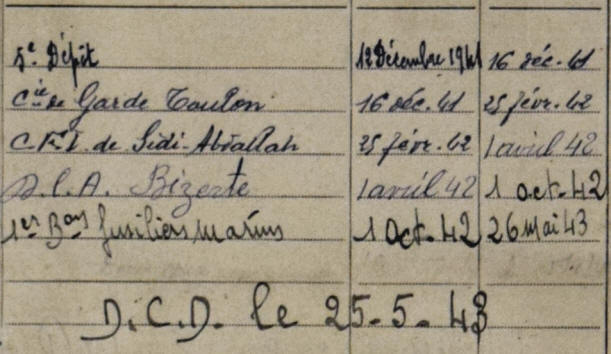 5e Dépôt 12 Décembre 1941 16 déc. 41
Cie de Garde Toulon 16 déc. 41 25 févr. 42
de Sidi-Abdallah 25 févr. 42 1 avril 42
D.C.A. Bizerte 1 avril 42 1 oct. 42
1er Bon fusiliers marins 1 Oct. 42 26 Mai 43
D.C.D. le 25-5-43